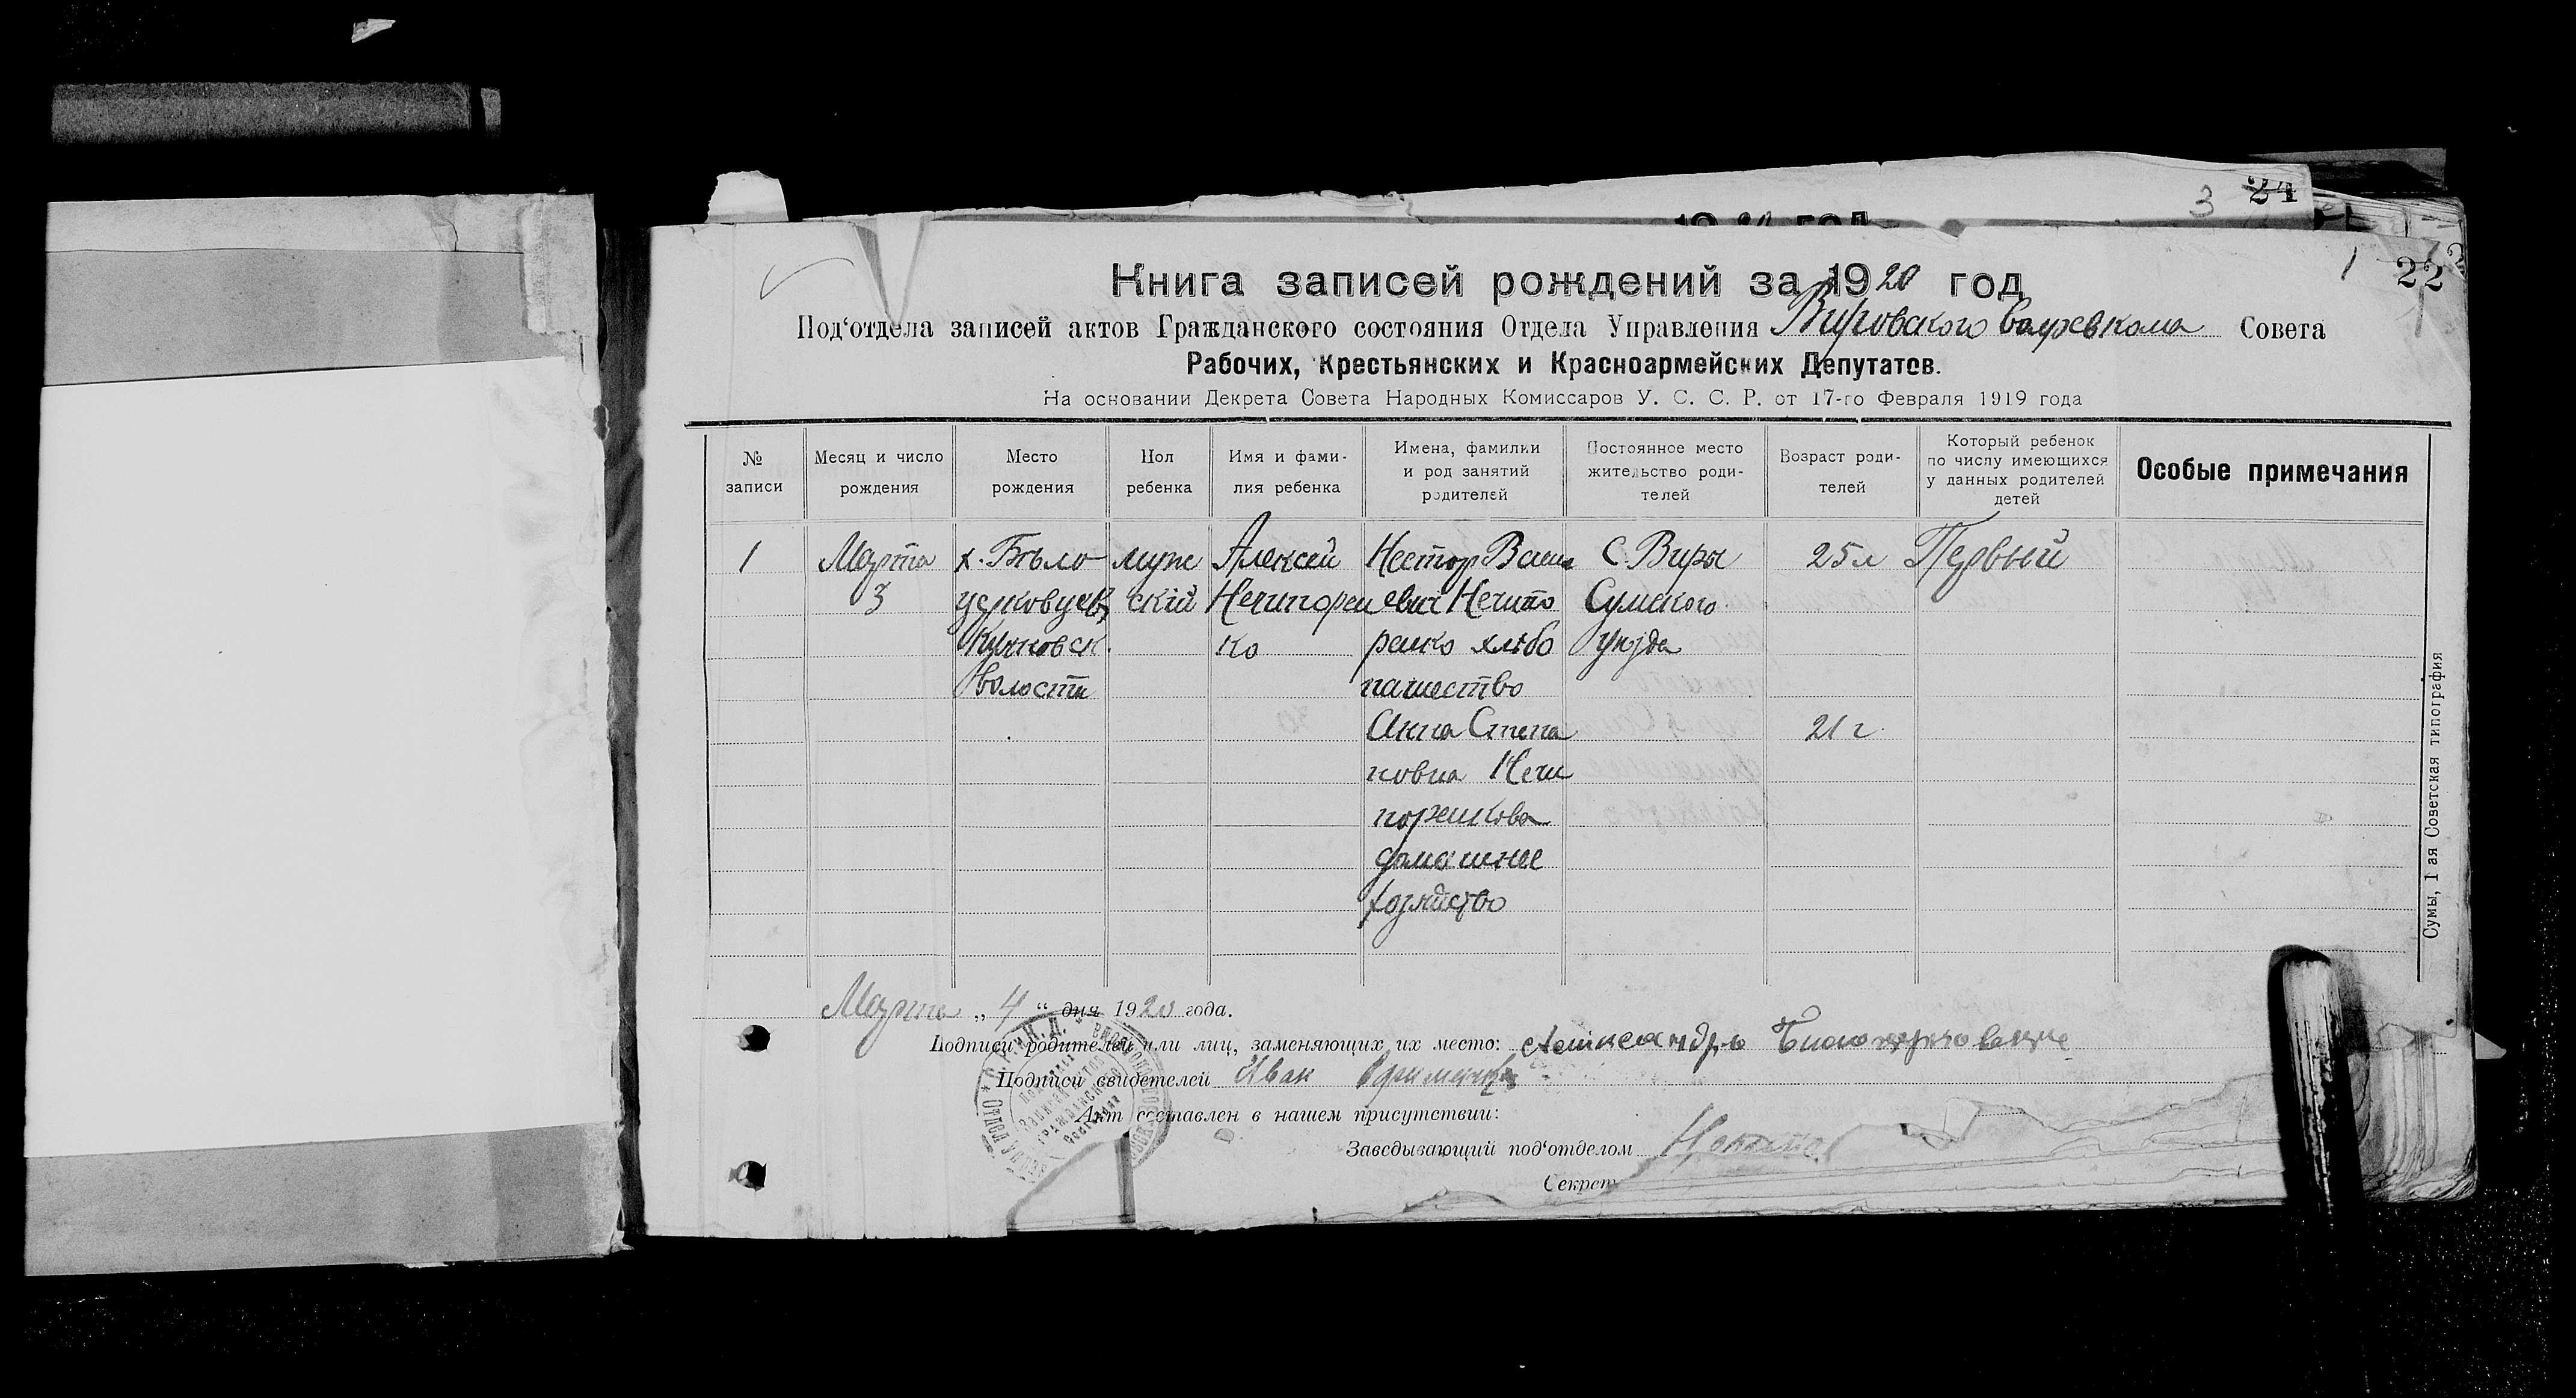 3 24
1 22
Книга записей рождений за 1920 год
Под‘отдела записей актов Гражданского состояния Отдела Управления Вировского Волревкома Совета
Рабочих, Крестьянских и Красноармейских Депутатов.
На основании Декрета Совета Народных Комиссаров У. С. С. Р. от 17-го Февраля 1919 года
№ записи
Месяц и число рождения
Место рождения
Пол ребенка
Имя и фами-
лия ребенка
Имена, фамилии
и род занятий
родителей
Постоянное место
жительство роди-
телей
Возраст роди-
телей
Который ребенок
по числу имеющихся
у данных родителей
детей
Особые примечания
1 Марта х. Бѣло муж Алексей Нестор Васи С. Виры 25 л Первый
3 ский Нечипорен евич Нечипо Сумского
ко ренко хлѣбо уезда
волости пашество
Анна Степа 21 г.
новна Нечи
поренкова
домашнее
хозяйство
Марта „ 4 “ дня 1920 года.
Подписи родителей или лиц, заменяющих их место:
Подписи свидетелей Иван
Акт составлен в нашем присутствии:
Заведывающий под‘отделом
Секрет
Сумы, 1 ая Советская типография